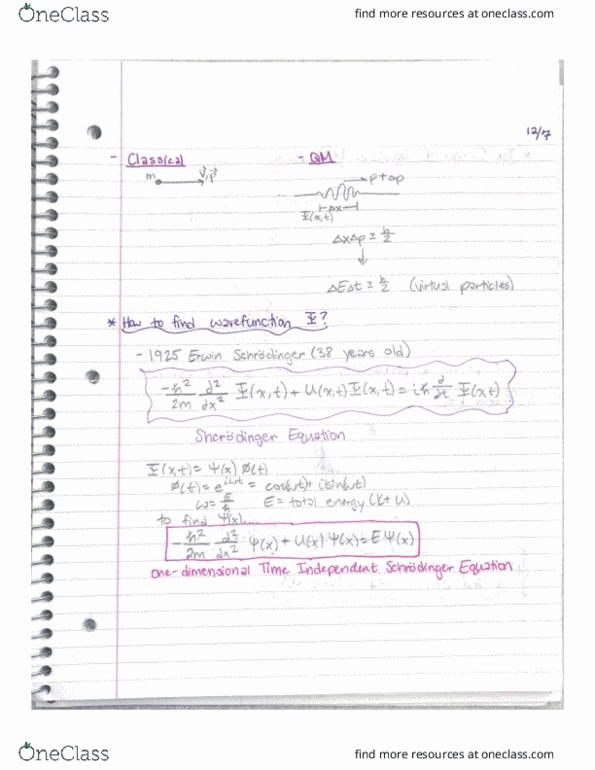 OneClass
find more resources at oneclass.com
12/7
- Classical
- QM
m v⃗, p⃗
p+Δp
Δx
Ψ(x,t)
ΔxΔp ≥ ħ/2
ΔEΔt ≥ ħ/2 (virtual particles)
* How to find wavefunction Ψ?
- 1925 Erwin Schrödinger (38 years old)
-ħ²/2m d²/dx² Ψ(x,t) + U(x,t)Ψ(x,t) = iħ ∂/∂t Ψ(x,t)
Shcrödinger Equation
Ψ(x,t) = ψ(x) ϕ(t)
ϕ(t) = e^iωt = cos(ωt) + isin(ωt)
ω = E/ħ E = total energy (K + U)
to find ψ(x)...
-ħ²/2m d²/dx² ψ(x) + U(x) ψ(x) = E ψ(x)
one-dimensional Time Independent Schrödinger Equation
OneClass
find more resources at oneclass.com